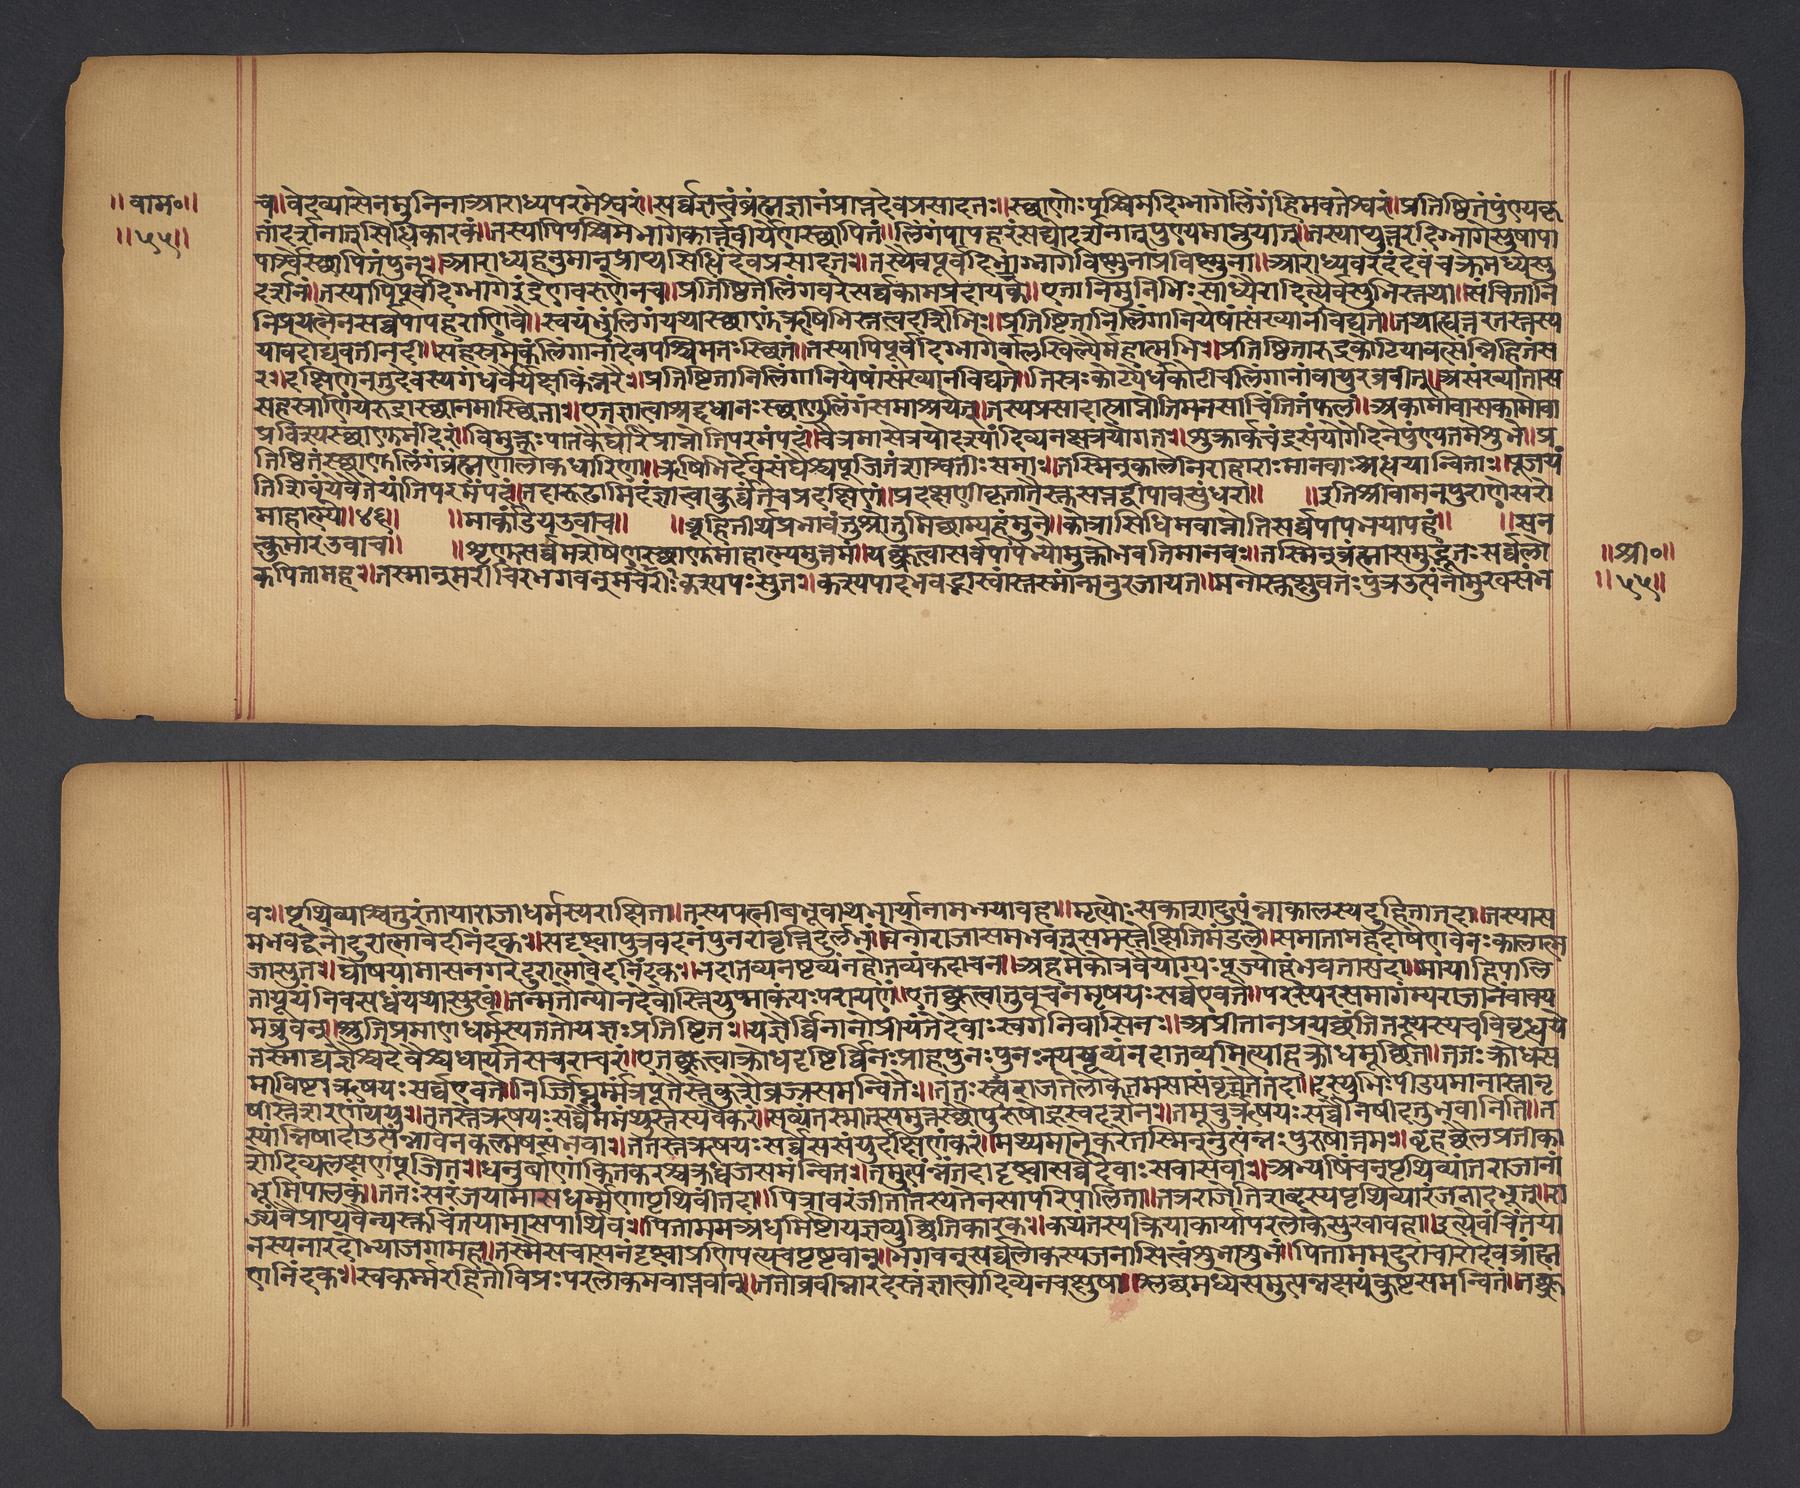 ॥वाम॰॥
॥५५॥
च॥वेदव्यासेनमुनिनाआराध्यपरमेश्वरं॥सर्व्वज्ञत्वंब्रह्मज्ञानंप्राप्तदेवप्रसादतः॥स्थाणोःपश्चिमदिग्भागेलिंगंहिमवतेश्वरं॥प्रतिष्ठितंपुंण्यकृ
तांदर्शनात्सिद्धिकारकं॥तस्यापिपश्चिमेभागेकार्त्तवीर्येणस्थापितं॥लिंगंपापहरंसद्योदर्शनात्पुण्यमाप्नुयात्॥तस्याप्युत्तरदिग्भागेसुषापा
पार्श्वेस्थापितंपुनः॥आराध्यहनुमान्प्राप्यसिद्धिंदेवप्रसादतः॥तस्यैवपूर्वदिग्भागेविष्णुनाप्रविष्णुना॥आराध्यवरदंदेवंचक्रमध्येसु
दर्शनं॥तस्यापिपूर्वदिग्भागेइंद्रेणवरुणेनच॥प्रतिष्ठितेलिंगवरेसर्व्वकामप्रदायके॥एतानिमुनिभिःसाध्यैरादित्यैर्वसुभिस्तथा॥सेवितानि
निप्रयत्नेनसर्व्वपापहराणिवै॥स्वयंभुलिंगंयथास्थाणुंऋषिभिस्तत्वदर्शिभिः॥प्रतिष्टितानिलिंगानियेषांसंख्यानविद्यते॥तथाह्युत्तरतस्तस्य
यावदोघवतीनदी॥सहस्रमेकंलिंगानांदेवपश्चिमतःस्थितं॥तस्यापिपूर्वदिग्भागेर्वालखिल्यैर्महात्मभिः॥प्रतिष्ठितारुद्रकोटिर्यावत्संन्निहितंस
रः॥दक्षिणेनतुदेवस्यगंधर्वैर्यक्षकिंन्नरैः॥प्रतिष्टितानिलिंगानियेषांसंख्यानविद्यते॥तिस्त्रःकोट्योर्धकोटीचलिंगानांवायुरब्रवीत्॥असंख्यातास
सहस्राणियेरुद्रास्थानमास्थिताः॥एतज्ज्ञात्वाश्रद्दधानःस्थाणुलिंगंसमाश्रयेत्॥तस्यप्रसादात्प्राप्नोतिमनसाचिंतितंफलं॥अकामोवासकामोवा
प्रविश्यस्थाणुमंदिरं॥विमुक्तःपातकैर्घोरैःप्राप्नोतिपरमंपदं॥चैत्रमासेत्रयोदश्यांदिव्यनक्षत्रयोगतः॥शुक्रार्कचंद्रसंयोगेदिनेपुंण्यतमेशुभे॥प्र
तिष्ठितंस्थाणुलिंगंब्रह्मणालोकधारिणा॥ऋषिभिर्देवसंघैश्चपूजितंशाश्वतीःसमाः॥तस्मिन्कालेनिराहाराःमानवाःश्रद्धयान्विताः॥पूजयं
तिशिवंयेवैतेयांतिपरमंपदं॥तदारूढामिदंज्ञात्वाकुर्व्वतिचप्रदक्षिणं॥प्रदक्षणीकृतातैस्तुसप्तद्वीपावसुंधरा॥ ॥इतिश्रीवामनपुराणेसरो
माहात्म्ये॥४६॥ ॥मार्कंडेयउवाच॥ ॥ब्रूहितीर्थप्रभावंतुश्रोतुमिच्छाम्यहंमुने॥कोत्रसिधिमवाप्नोतिसर्व्वपापभयापहं॥ ॥सन
त्कुमारउवाच॥ ॥शृणुसर्व्वमशेषेणस्थाणुमाहात्म्यमुत्तमं॥यछ्रुत्वासर्वपापेभ्योमुक्तोभवतिमानवः॥तस्मिन्ब्रह्मासमुद्भूतःसर्व्वलो
कपितामहः॥तस्मान्मरीचिरभगवन्मरीचेःकश्यपःसुतः॥कश्यपादभवद्भास्वांस्तस्मांन्मनुरजायत॥मनोस्तुक्षुवतःपुत्रउत्पंनोमुखसंभ
॥श्री॰॥
॥५५॥
वः॥पृथिव्याश्चतुरंतायाराजाधर्मस्यरक्षिता॥तस्यपत्नीबभूवाथभार्यानामभयावहा॥मृत्योःसकाशादुत्पंन्नाकालस्यदुहितातदा॥तस्यास
मभवद्वेनोदुरात्मावेदनिंदकः॥सदृष्ट्वापुत्रवदनंपुनरावृत्तिदुर्लभं॥वेनोराजासमभवत्समस्तेक्षितिमंडले॥समातामहदोषेणवेनःकालात्म
जासुतः॥घोषयामासनगरेदुरात्मावेदनिंदकः॥नदातव्यनष्टव्यंनहोतव्यंकदाचन॥अहमेकोत्रवैयोग्यःपूज्योहंभवतासदा॥मायाहिपालि
तायूयंनिवसध्वंयथासुखं॥तन्मतोन्योनदेवोस्तियुष्माकंयःपरायणं॥एतछ्रुत्वातुवचनमृषयःसर्व्वएवते॥परस्परसमागंम्यराजानंवाक्य
मब्रुवन्॥श्रुतिप्रमाणधर्मस्यततोयज्ञःप्रतिष्टितः॥यज्ञैर्विनानोप्रीयंतेदेवाःस्वर्गनिवासिनः॥अप्रीतानप्रयछंतितस्यस्यचविवृद्धये
तस्माद्यज्ञैश्चदेवैश्चधार्यतेसचराचरं॥एतछ्रुत्वाक्रोधदृष्टिर्विनःप्राहपुनःपुनःनयष्टव्यंनदातव्यमित्याहक्रोधमूर्छितः॥ततःक्रोधस
माविष्टाऋषयःसर्व्वएवते॥निर्जघ्नुर्मंत्रपूतैस्तेकुशैर्वज्रसमन्वितैः॥ततःस्त्वंराजतेलोकेतमसासंवृत्तेतदा॥दस्युभिःपीड्यमानास्तानृ
षींस्तेशरणंययुः॥ततस्तेऋषयःसर्व्वेममंथुस्तस्यवैकरं॥सव्यंतस्मात्समुत्तस्थौपुरुषोह्रस्वदर्शनः॥तमूचुर्ऋषयःसर्व्वेनिषीदतुभवानिति॥त
स्यांन्निषादाउत्पंन्नावेनकल्मषसंभवाः॥ततस्तेऋषयःसर्व्वेममंथुर्दक्षिणंकरं॥मथ्यमानेकरेतस्मिन्नुत्पंन्नःपुरुषोत्तमः॥बृहछैलप्रतीका
शोदिव्यलक्षणपूजितः॥धनुर्वाणांकितकरश्चक्रध्वजसमन्वितः॥तमुत्पंन्नंतदादृष्ट्वासर्व्वदेवाःसवासवाः॥अभ्यषिंचन्पृथिव्यांतंराजानां
भूमिपालकं॥ततःसरंजयामासधर्म्मेणपृथिवींतदा॥पित्रापरंजीतातस्यतेनसापरिपालिता॥तत्रराजेतिशब्दस्यपृथिव्यारंजनादभूत्॥रा
ज्यंवैप्राप्यवैन्यस्तुचिंतयामासपार्थिवः॥पिताममअधर्मिष्टोयज्ञव्युछितिकारकः॥कथंतस्यक्रियाकार्यापरलोकंसुखावहा॥इत्येवंचिंतया
नस्यनारदोभ्याजगामह॥तस्मैसचासनंदृष्ट्वाप्रणिपत्यचपृष्टवान्॥भगवन्सर्व्वलोकस्यजनासित्वंशुभाशुभं॥पिताममदुराचारोदेवब्रांह्म
णनिंदकः॥स्वकर्म्मरहितोविप्रःपरलोकमवाप्तवान्॥ततोब्रवीन्नारदस्तंज्ञात्वादिव्येनचक्षुषा॥म्लेछमध्येसमुत्पन्नंक्षयंकुष्टसमन्वितं॥तछ्रु